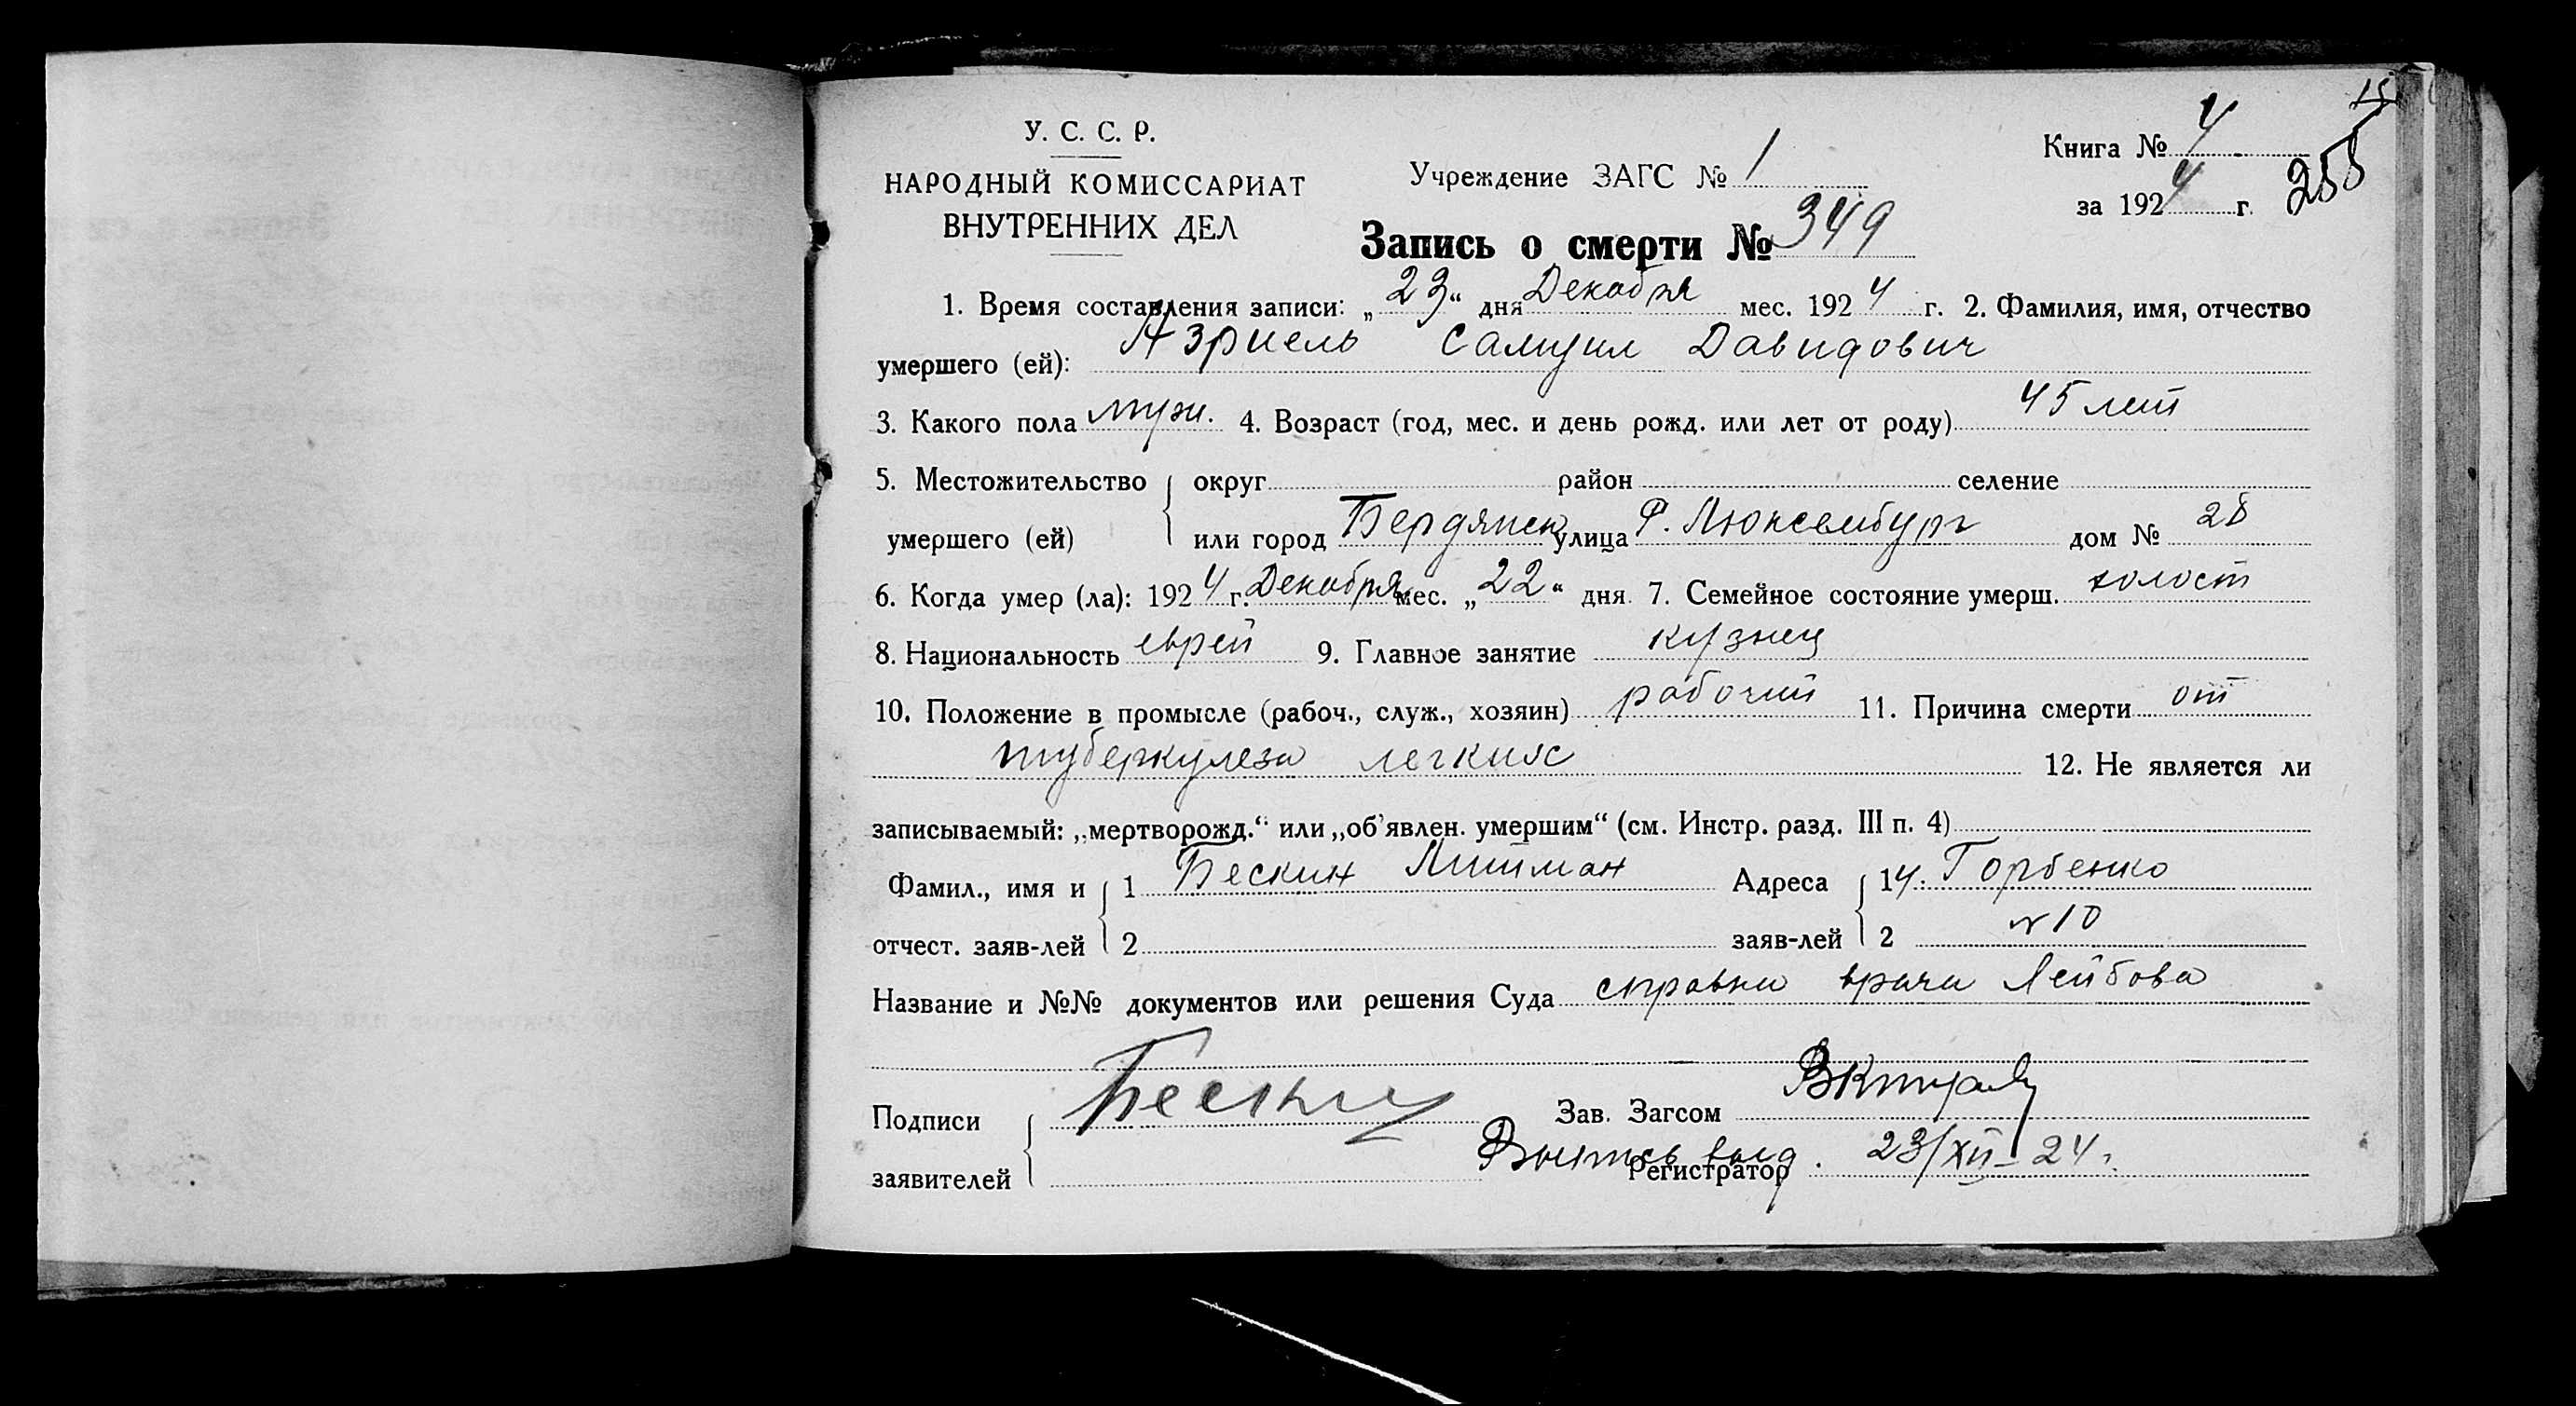 15
У. С. С. Р.
НАРОДНЫЙ КОМИССАРИАТ
ВНУТРЕННИХ ДЕЛ
Учреждение ЗАГС № 1
Книга № 4
за 1924 г.
255
Запись о смерти № 349
1. Время составления записи: „23“ дня Декабря мес. 1924 г. 2. Фамилия, имя, отчество
умершего (ей): Азриель Самуил Давидович
3. Какого пола муж. 4. Возраст (год, мес. и день рожд. или лет от роду) 45 лет
5. Местожительство { округ район селение
умершего (ей) или город Бердянск улица Р. Люксембург дом № 28
6. Когда умер (ла): 1924 г. Декабря мес. „22“ дня 7. Семейное состояние умерш. холост
8. Национальность еврей 9. Главное занятие кузнец
10. Положение в промысле (рабоч., служ., хозяин) рабочий 11. Причина смерти от
туберкулеза легких 12. Не является ли
записываемый: „мертворожд.“ или „об'явлен. умершим“ (см. Инстр. разд. III п. 4)
Фамил., имя и { 1 Бескин Литман Адреса { 1 у. Горбенко
отчест. заяв-лей 2 заяв-лей 2 № 10
Название и №№ документов или решения Суда справка врача Лейбова
Подписи { Бескин Зав. Загсом
заявителей Регистратор 23/XII-24 г.